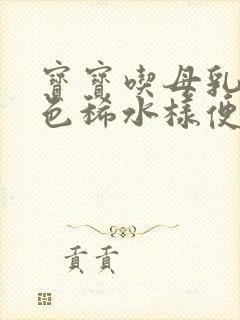 寶寶喫母乳
色稀水樣便
貢貢